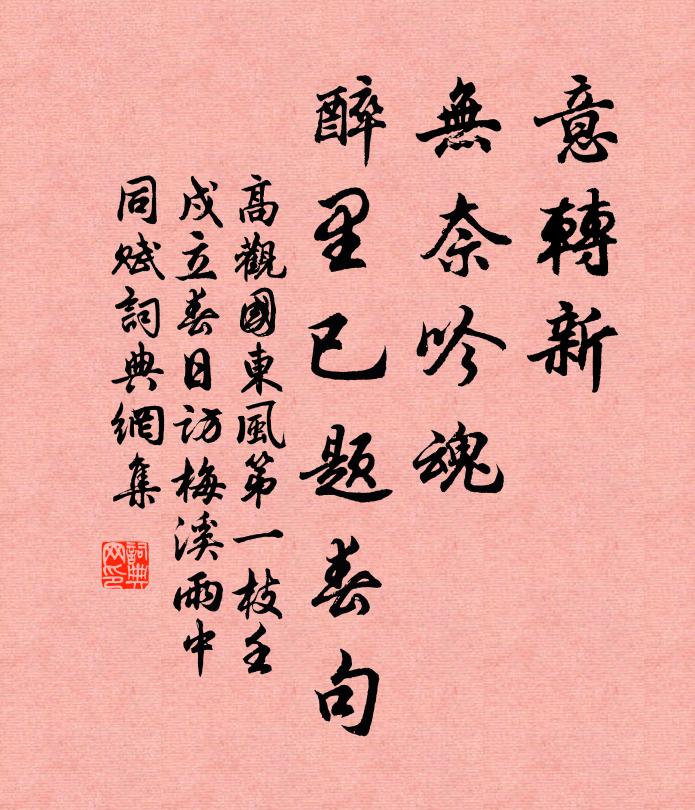 意轉新
無奈吟魂
醉里已題春句
高觀國東風第一枝壬
戌立春日訪梅溪雨中
同賦詞典網集
詞典
网印